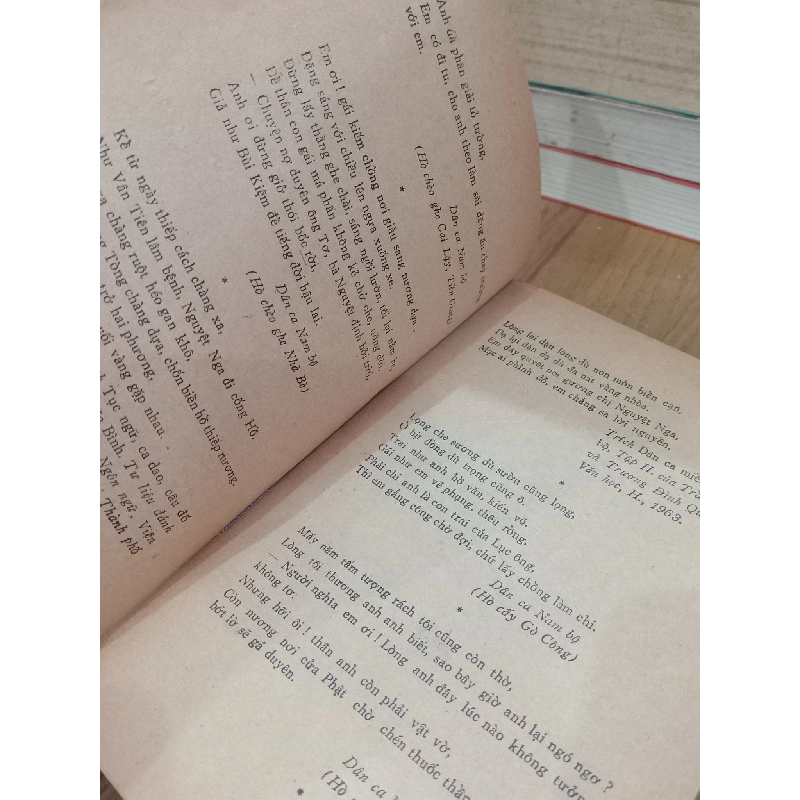 Anh đà phân giải tỏ tường,
Em có đi tu, cho anh theo làm sãi đặng ăn chay trường
với em.
Dân ca Nam bộ
(Hò chèo ghe Cai Lậy, Tiền Giang)
*
Em ơi ! gái kiếm chồng nơi giàu sang nương dựa,
Đặng sáng với chiều lên ngựa xuống xe.
Đừng lấy thằng ghe chài, sáng ngồi lườn, tối lại nằm
Để thân con gái má phấn không kẻ chở che,
— Chuyện nợ duyên ông Tơ, bà Nguyệt định rồi,
Anh ơi đừng giở thói bốc rời,
Giả như Bùi Kiệm để tiếng đời hậu lai.
Dân ca Nam bộ
(Hò chèo ghe Nhà Bè)
*
Kể từ ngày thiếp cách chàng xa,
Như Vân Tiên lâm bệnh, Nguyệt Nga đi cống Hồ.
chàng ruột héo gan khô,
Tòng chàng dựa, chốn biển hồ thiếp nương.
trở hai phương,
vàng gặp nhau.
Tục ngữ, ca dao, câu đố
Bình. Tư liệu đánh
Ngôn ngữ, Viện
Thành phố
Lòng lại dặn lòng dù non mòn biển cạn,
Dạ lại dặn dạ dù đá nát vàng nhòa.
Em đây quyết noi gương chị Nguyệt Nga,
Mặc ai phỉnh dỗ, em chẳng sa lời nguyền.
Trích Dân ca miền
bộ, Tập II. của
và Trương Đình
Văn học, H., 1963.
*
Lọng che sương dù sườn cũng lọng,
Ô bịt đồng dù trọng cũng ô.
Trai như anh hồ văn, kiến võ,
Gái như em vẽ phụng, thêu rồng.
Phải chi anh là con trai của Lục ông,
Thì em gắng công chờ đợi, chứ lấy chồng làm chi.
Dân ca Nam bộ
(Hò cấy Gò Công)
*
Mấy năm tấm tượng rách tôi cũng còn thờ,
Lòng tôi thương anh anh biết, sao bây giờ anh lại ngó ngơ ?
— Người nghĩa em ơi ! Lòng anh đây lúc nào không tưởng
không tơ.
Nhưng hỡi ôi ! thân anh còn phải vật vờ,
Còn nương nơi cửa Phật chờ chén thuốc thần
bớt tờ sẽ gá duyên.
Dân ca Nam
(Hò
*